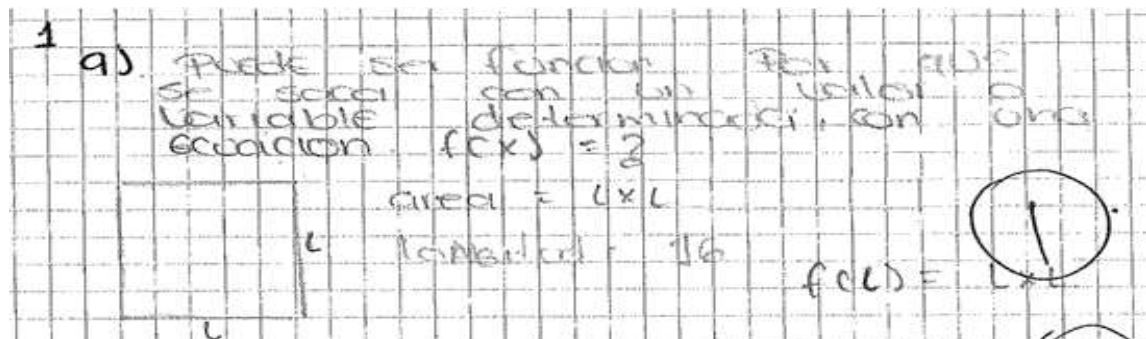 1
a) Puede ser funcion Por que
se saca con un valor o
variable determinada, con una
ecuacion. f(x) = ?
area = L x L
L
= 16
f(L) = L x L
1
L